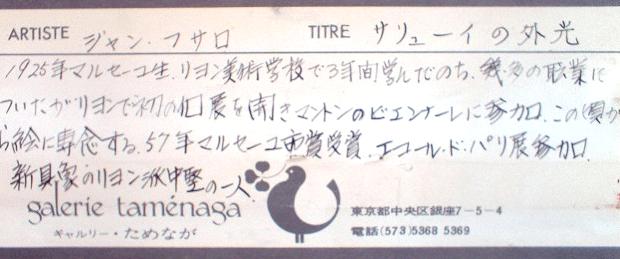 ARTISTE ジャン・フサロ TITRE サリューイの外光
1925年マルセーユ生.リヨン美術学校で3年間学んだのち、幾多の職業に
ついたがリヨンで初の個展を開きマントンのビエンナーレに参加.この頃か
ら絵に専念する.57年マルセーユ市賞受賞.エコール・ド・パリ展参加.
新具象のリヨン派中堅の一人.
galerie taménaga
ギャルリー・ためなが
東京都中央区銀座7-5-4
電話(573)5368 5369